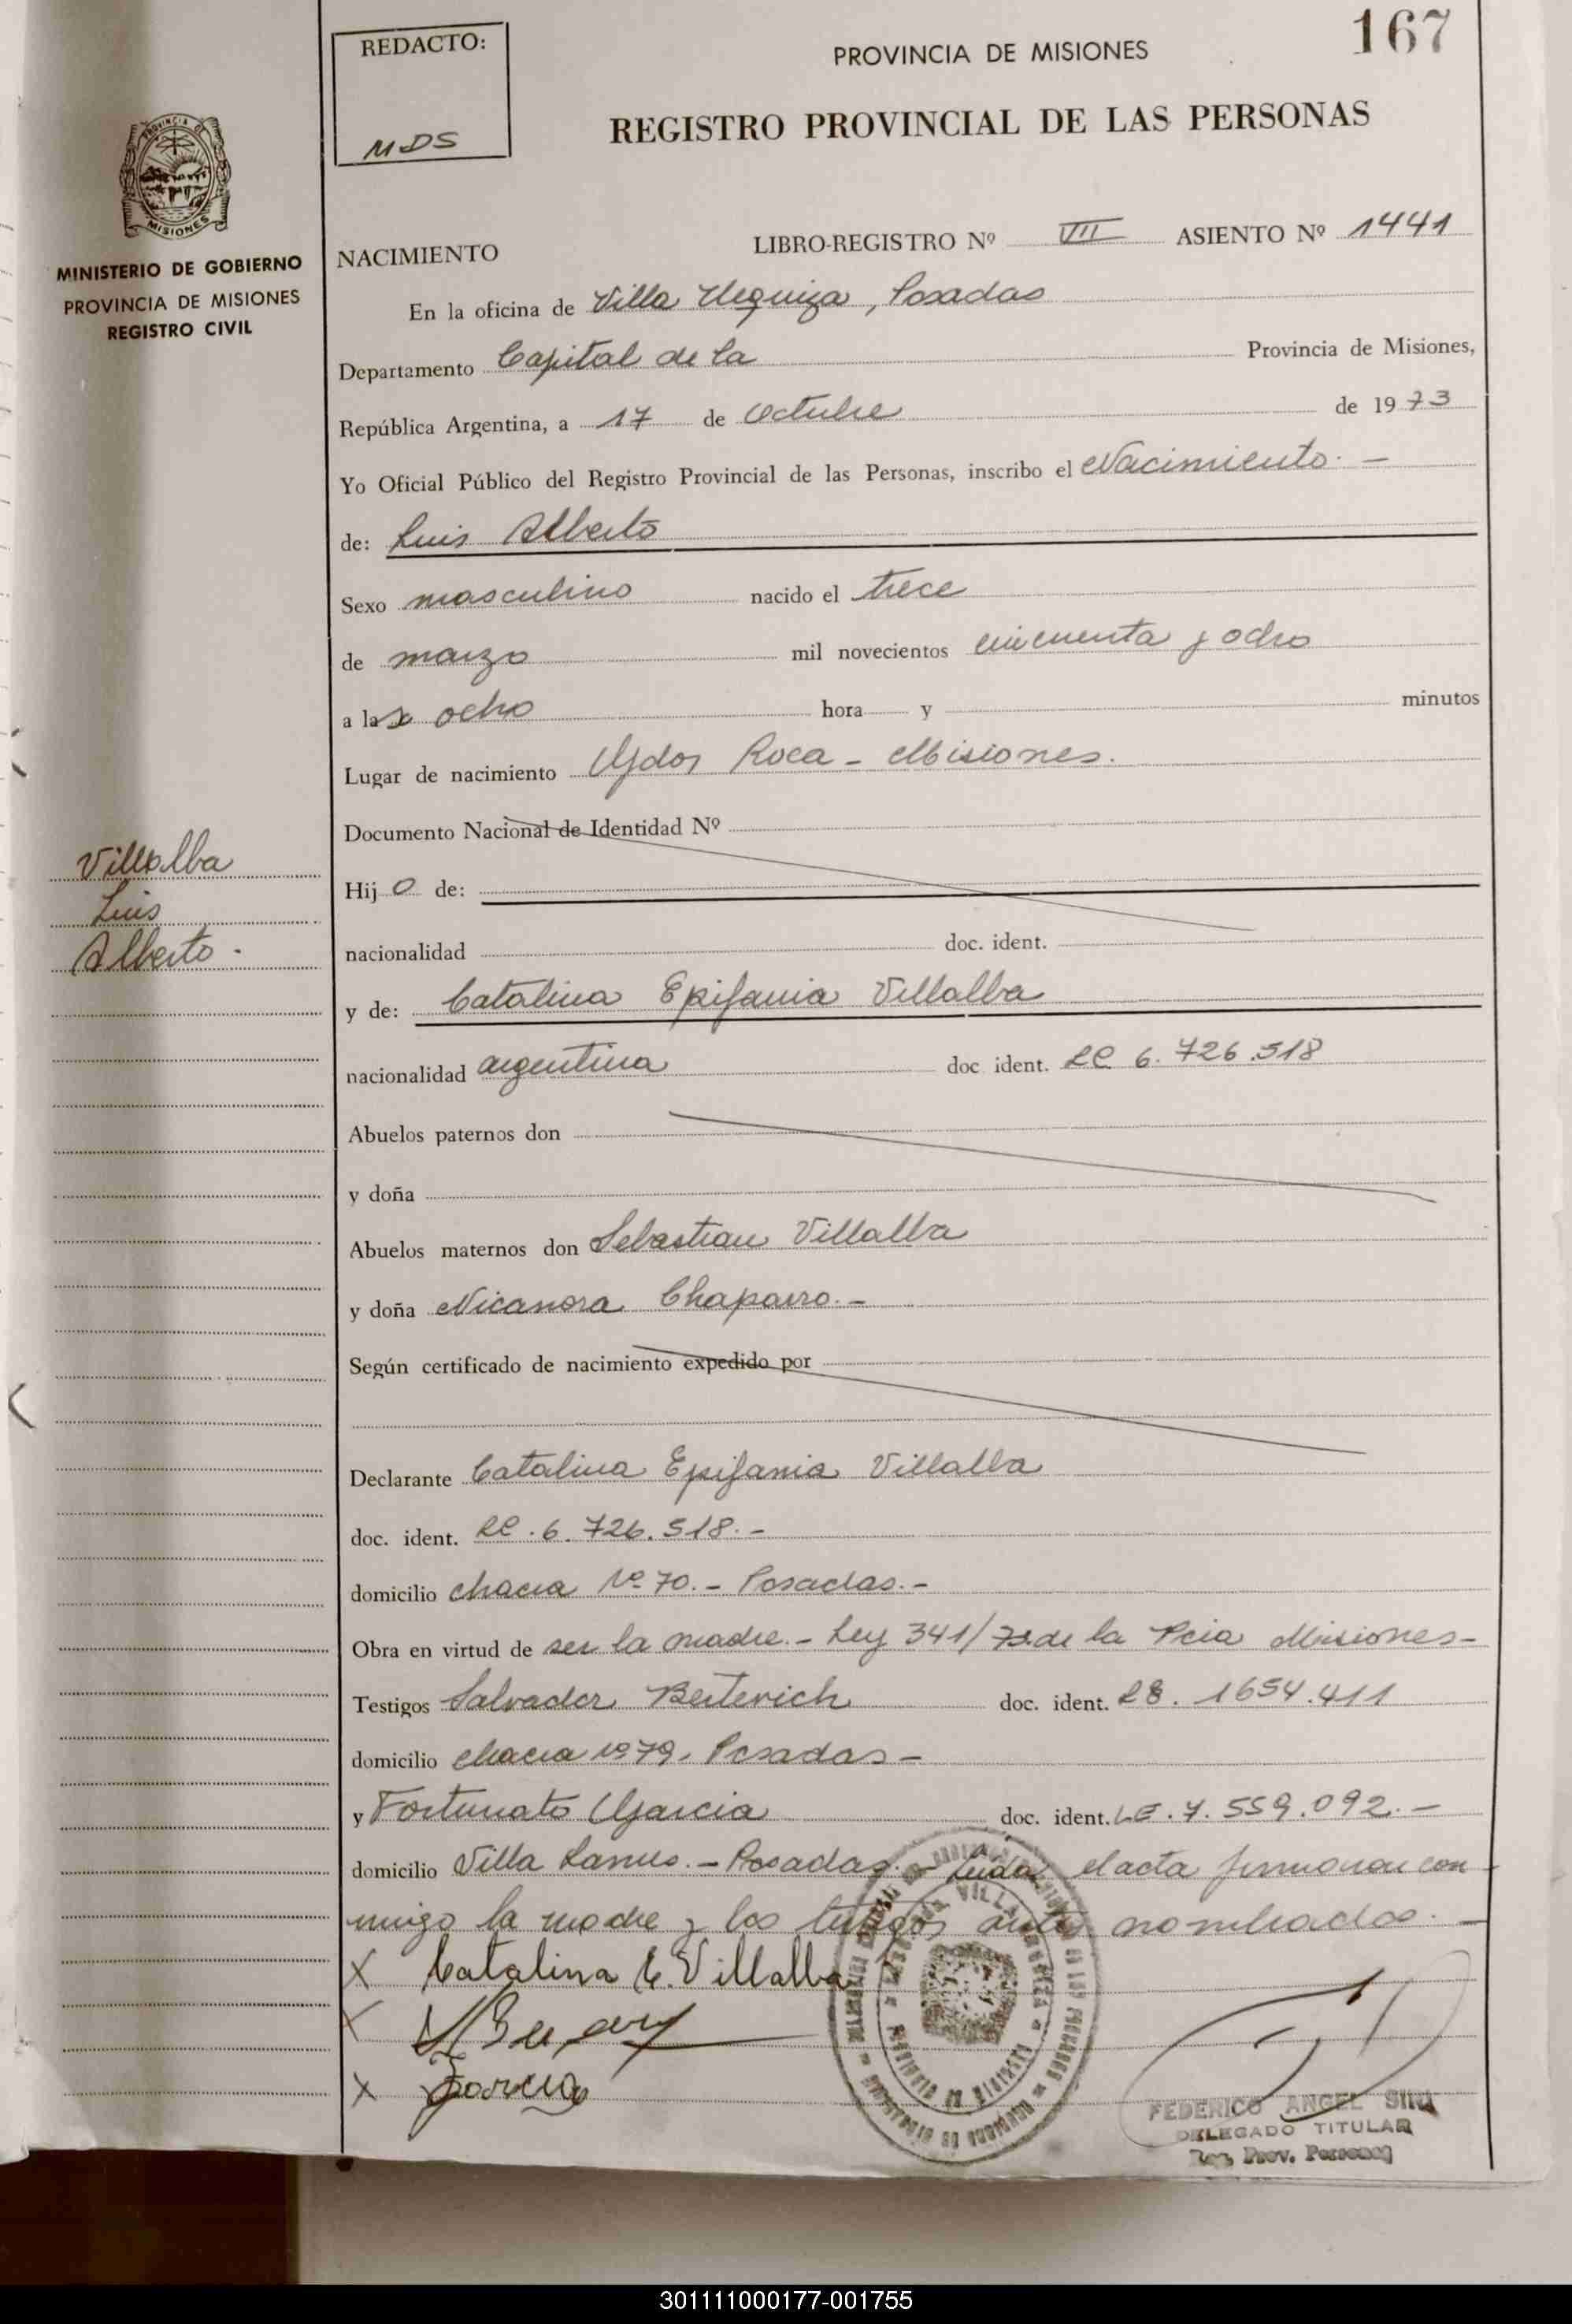 167
REDACTO:
MDS
PROVINCIA DE MISIONES
REGISTRO PROVINCIAL DE LAS PERSONAS
MISIONES
MINISTERIO DE GOBIERNO
PROVINCIA DE MISIONES
REGISTRO CIVIL
NACIMIENTO LIBRO-REGISTRO Nº VII ASIENTO Nº 1441
En la oficina de Villa Urquiza, Posadas
Departamento Capital de la Provincia de Misiones,
República Argentina, a 17 de Octubre de 1973
Yo Oficial Público del Registro Provincial de las Personas, inscribo el Nacimiento. -
de: Luis Alberto
Sexo masculino nacido el trece
de marzo mil novecientos cincuenta y ocho
a las ocho hora y minutos
Lugar de nacimiento Gdor Roca - Misiones.
Documento Nacional de Identidad Nº
Villalba
Luis
Alberto.
Hijo de:
nacionalidad doc. ident.
y de: Catalina Epifania Villalba
nacionalidad argentina doc ident. LC 6.726.518
Abuelos paternos don
y doña
Abuelos maternos don Sebastian Villalba
y doña Nicanora Chaparro. -
Según certificado de nacimiento expedido por
Declarante Catalina Epifania Villalba
doc. ident. LC. 6.726.518. -
domicilio chacra Nº 70. - Posadas. -
Obra en virtud de ser la madre. - Ley 341/73 de la Pcia Misiones -
Testigos Salvador Beiterich doc. ident. 1654.411
domicilio chacra nº 79. Posadas -
y Fortunato Garcia doc. ident. LE. 7.559.092. -
domicilio Villa Lanus. - Posadas. - Leida el acta firmaron con
migo la madre y los testigos antes nombrados. -
X Catalina E. Villalba
X
X Garcia
FEDERICO ANGEL
DELEGADO TITULAR
Reg. Prov. Personas
301111000177-001755